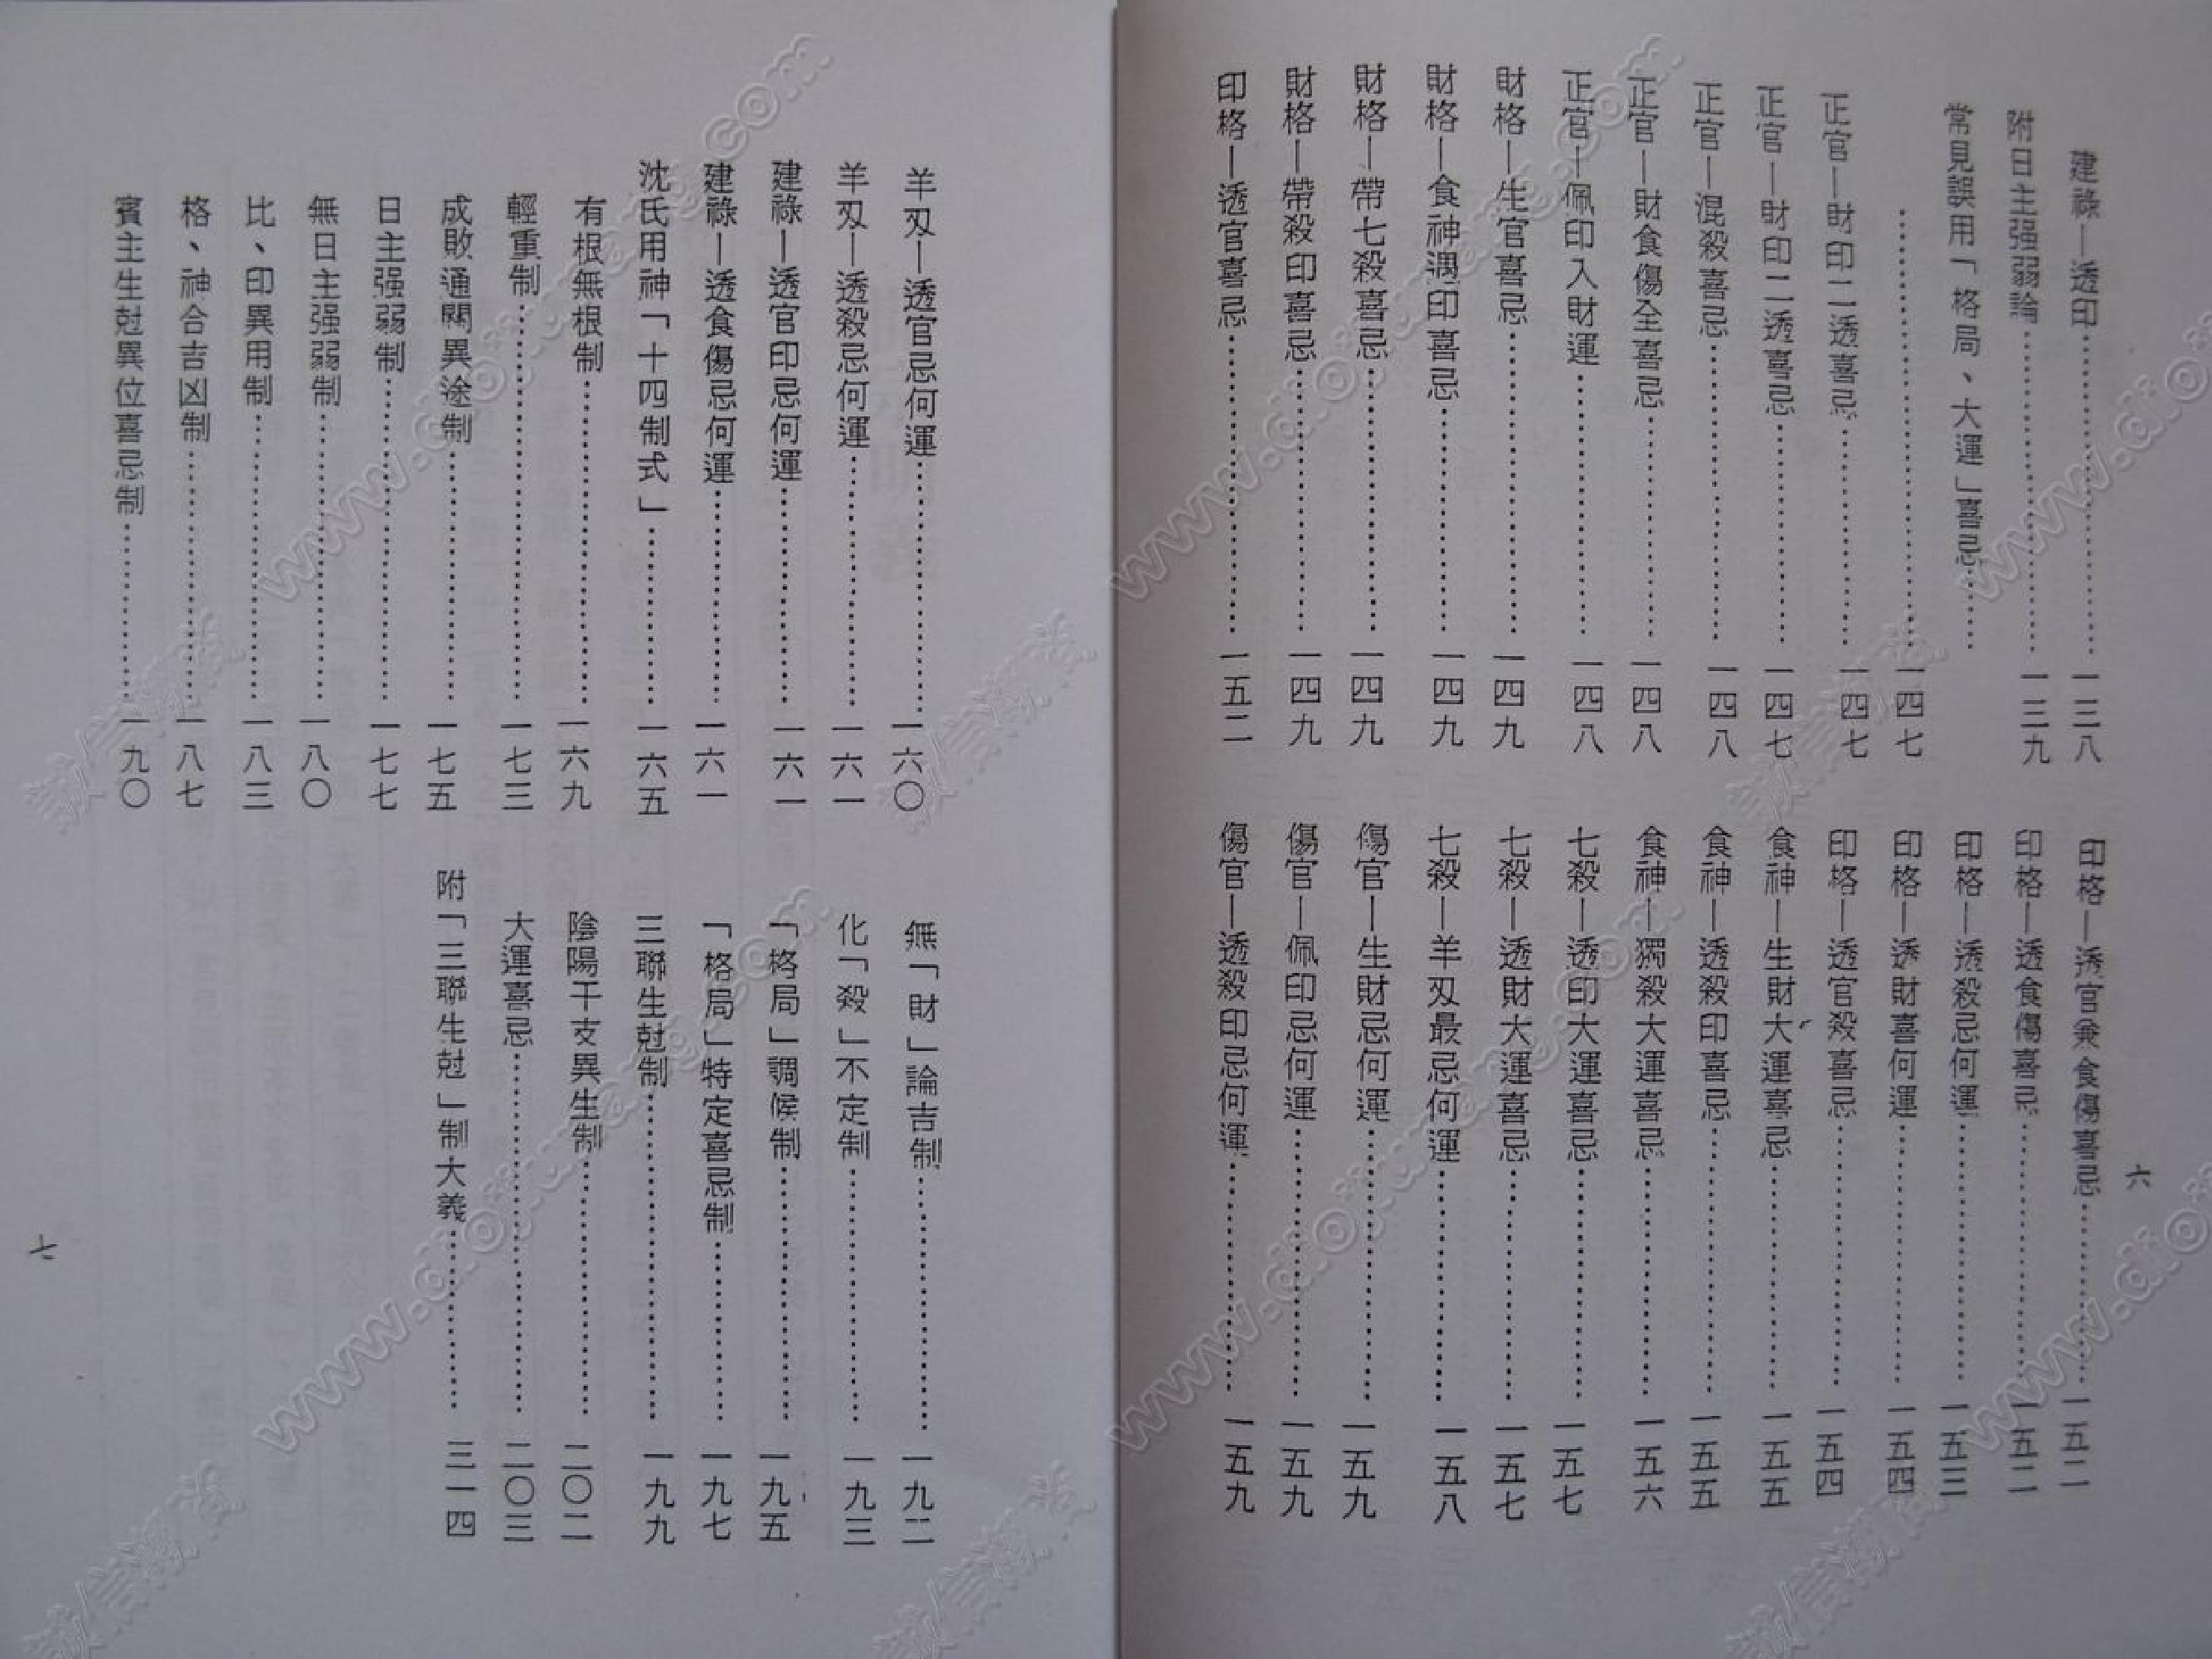 建祿—透印……一三八
附日主强弱論……一三九
常見誤用「格局、大運」喜忌……
……一四七
正官—財印二透喜忌……一四七
正官—財印二透喜忌……一四七
正官—混殺喜忌……一四八
正官—財食傷全喜忌……一四八
正官—佩印入財運……一四八
財格—生官喜忌……一四九
財格—食神遇印喜忌……一四九
財格—帶七殺喜忌……一四九
財格—帶殺印喜忌……一四九
印格—透官喜忌……一五二
印格—透官兼食傷喜忌……一五二
印格—透食傷喜忌……一五二
印格—透殺忌何運……一五三
印格—透財喜何運……一五四
印格—透官殺喜忌……一五四
食神—生財大運喜忌……一五五
食神—透殺印喜忌……一五五
食神—獨殺大運喜忌……一五六
七殺—透印大運喜忌……一五七
七殺—透財大運喜忌……一五七
七殺—羊刄最忌何運……一五八
傷官—生財忌何運……一五九
傷官—佩印忌何運……一五九
傷官—透殺印忌何運……一五九
六
羊刄—透官忌何運……一六〇
羊刄—透殺忌何運……一六一
建祿—透官印忌何運……一六一
建祿—透食傷忌何運……一六一
沈氏用神「十四制式」……一六五
有根無根制……一六九
輕重制……一七三
成敗通關異途制……一七五
日主强弱制……一七七
無日主强弱制……一八〇
比、印異用制……一八三
格、神合吉凶制……一八七
賓主生尅異位喜忌制……一九〇
無「財」論吉制……一九二
化「殺」不定制……一九三
「格局」調候制……一九五
「格局」特定喜忌制……一九七
三聯生尅制……一九九
陰陽干支異生制……二〇二
大運喜忌……二〇三
附「三聯生尅」制大義……三一四
七
www.diojume.com
誠信瀚海